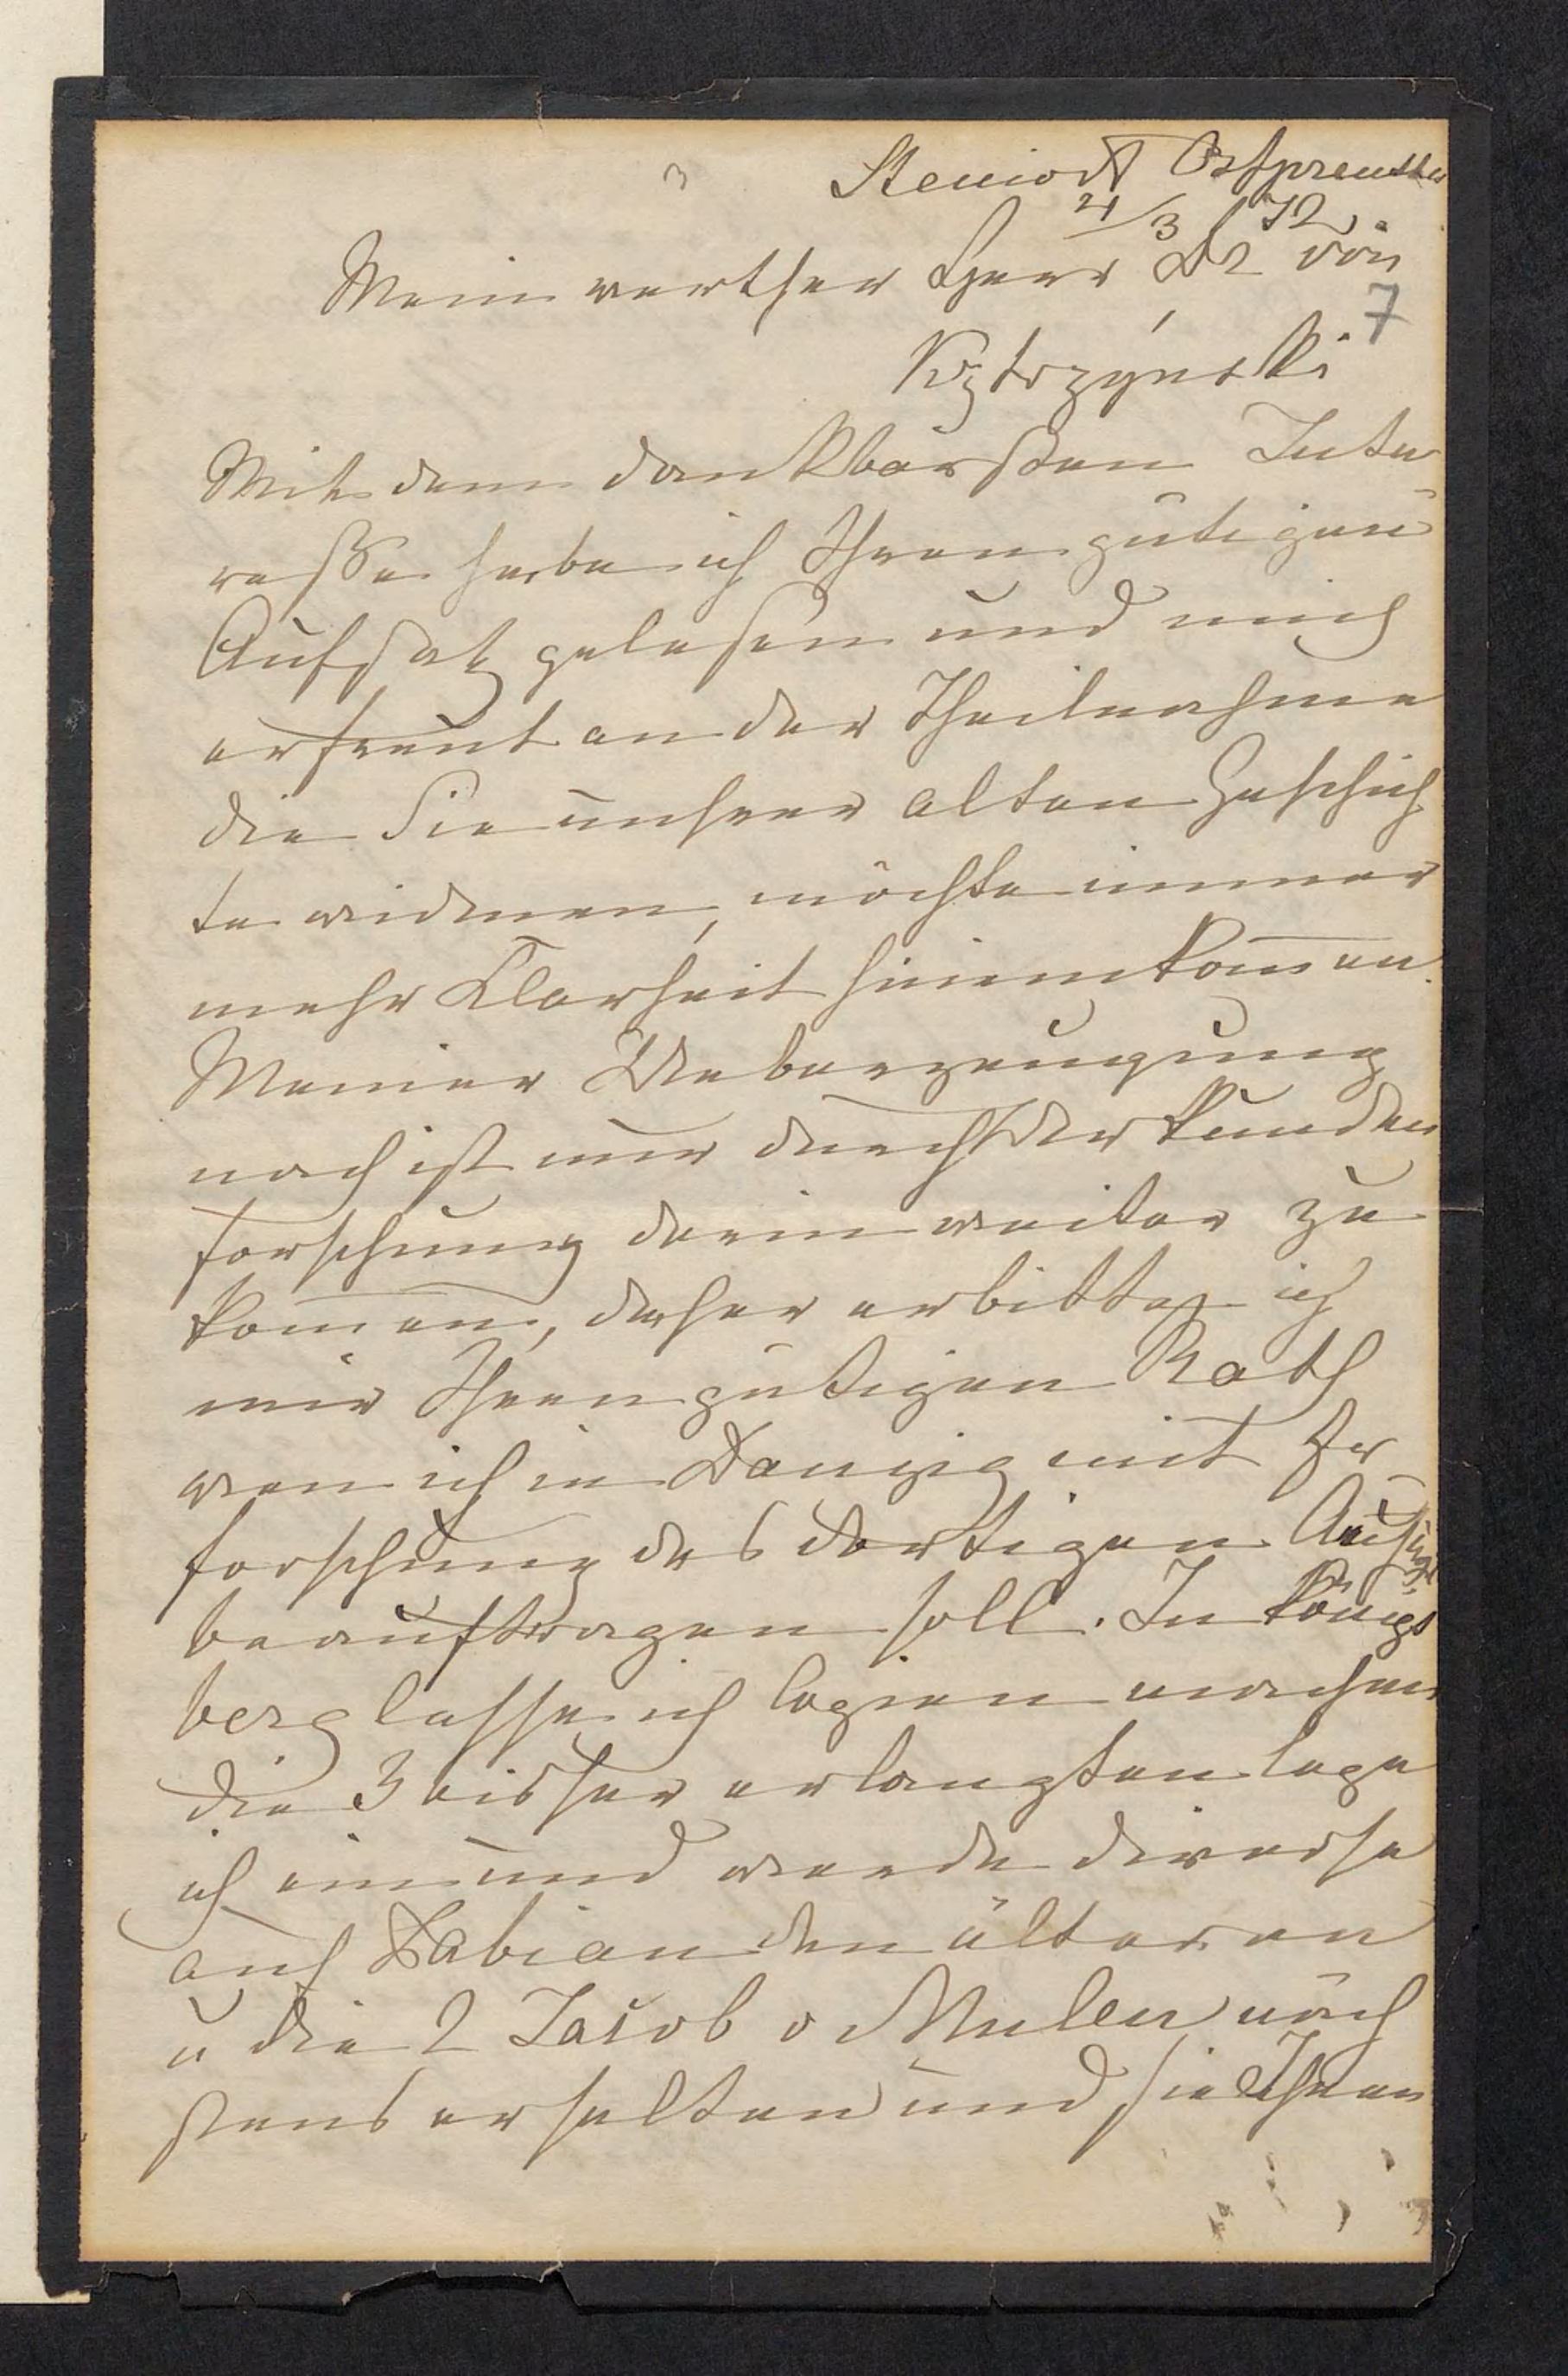 Ostpreußen
21/3 72.
Mein werther Herr Dr von
7
Kętrzyński
Mit dem dankbarsten Inte
resse habe ich Ihren gütigen
Aufsatz gelesen und mich
erfreut an der Theilnahme
die Sie unsrer alten Geschich
te widmen, möchte immer
mehr Klarheit hinein kom̄en.
Meiner Ueberzeugung
nach ist nur durch Urkunden
forschung darin weiter zu
kom̄en, daher erbitte ich
mir Ihren gütigen Rath
wen ich in Danzig mit Er
forschung des dortigen
beauftragen soll. In Königs
berg lasse ich Copien machen
die 3 bisher erlangten lege
ich ein und werde diverse
auf Fabian den älteren
u die 2 Jacob v Mulen näch
stens erhalten und sie Ihnen